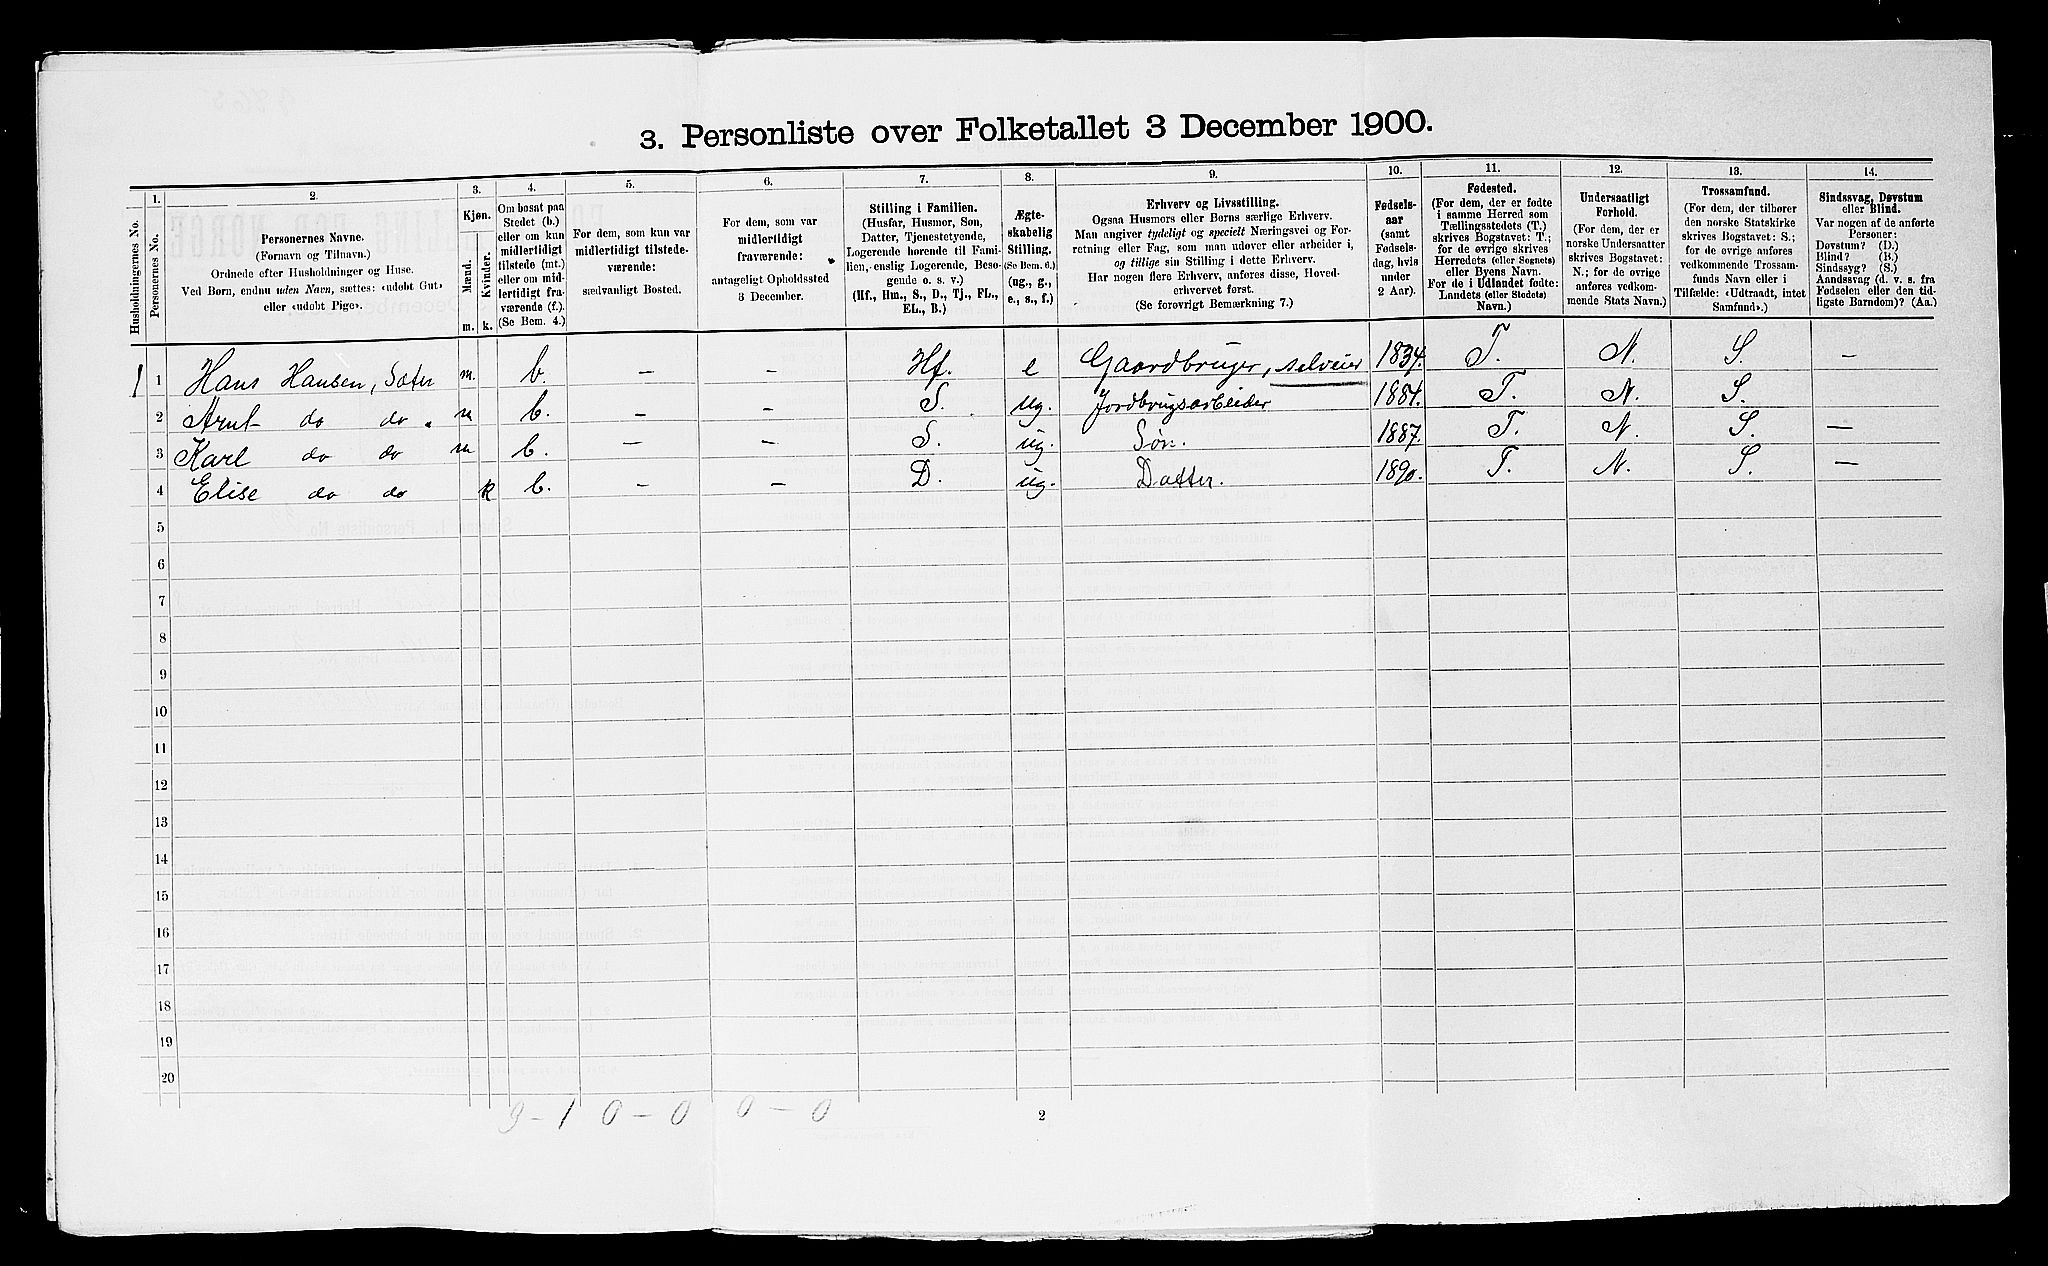 3. Personliste over Folketallet 3 December 1900.
Husholdningernes No.
1.
Personernes No.
2.
Personernes Navne.
(Fornavn og Tilnavn.)
Ordnede efter Husholdninger og Huse.
Ved Børn, endnu uden Navn, sættes: «udøbt Gut»
eller «udøbt Pige».
3.
Kjøn.
Mænd.
Kvinder.
m. k.
4.
Om bosat paa
Stedet (b.)
eller om kun
midlertidigt
tilstede (mt.)
eller om mid-
lertidigt fra-
værende (f.).
(Se Bem. 4.)
5.
For dem, som kun var
midlertidigt tilstede-
værende:
sædvanligt Bosted.
6.
For dem, som var
midlertidigt
fraværende:
antageligt Opholdssted
3 December.
7.
Stilling i Familien.
(Husfar, Husmor, Søn,
Datter, Tjenestetyende,
Logerende hørende til Fami-
lien, enslig Logerende, Besø-
gende o. s. v.)
(Hf., Hm., S., D., Tj., FL.,
EL., B.)
8.
Ægte-
skabelig
Stilling.
(Se Bem. 6.)
(ug., g.,
e., s., f.)
9.
Erhverv og Livsstilling.
Ogsaa Husmors eller Børns særlige Erhverv.
Man angiver tydeligt og specielt Næringsvei og For-
retning eller Fag, som man udøver eller arbeider i,
og tillige sin Stilling i dette Erhverv.
Har nogen flere Erhverv, anføres disse, Hoved-
erhvervet først.
(Se forøvrigt Bemærkning 7.)
10.
Fødsels-
aar
(samt
Fødsels-
dag, hvis
under
2 Aar).
11.
Fødested.
(For dem, der er fødte
i samme Herred som
Tællingsstedets (T.)
skrives Bogstavet: T.;
for de øvrige skrives
Herredets (eller Sognets)
eller Byens Navn.
For de i Udlandet fødte:
Landets (eller Stedets)
Navn.)
12.
Undersaatligt
Forhold.
(For dem, der er
norske Undersaatter
skrives Bogstavet:
N.; for de øvrige
anføres vedkom-
mende Stats Navn.)
13.
Trossamfund.
(For dem, der tilhører
den norske Statskirke
skrives Bogstavet: S.;
for de øvrige anføres
vedkommende Trossam-
funds Navn eller i
Tilfælde: «Udtraadt, intet
Samfund».)
14.
Sindssvag, Døvstum
eller Blind.
Var nogen af de anførte
Personer:
Døvstum? (D.)
Blind? (B.)
Sindssyg? (S.)
Aandssvag (d. v. s. fra
Fødselen eller den tid-
ligste Barndom)? (Aa.)
1 1 Hans Hansen, Sæter m. b. — — Hf. e Gaardbruger, selveier 1834. T. N. S. —
2 Arnt do do. m b. — — S. ug. Jordbrugsarbeider 1884. T. N. S.
3 Karl do do m b. — — S. ug. Søn. 1887. T. N. S. —
4 Elise do do k b. — — D. ug. Datter. 1890. T. N. S. —
5
6
7
8
9
10
11
12
13
14
15
16
17
18
19
20
3 – 1 0 – 0 0 – 0
2